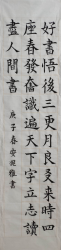 好書悟後三更月良友来時四
座春發奮識遍天下字立志讀
盡人間書
庚子春